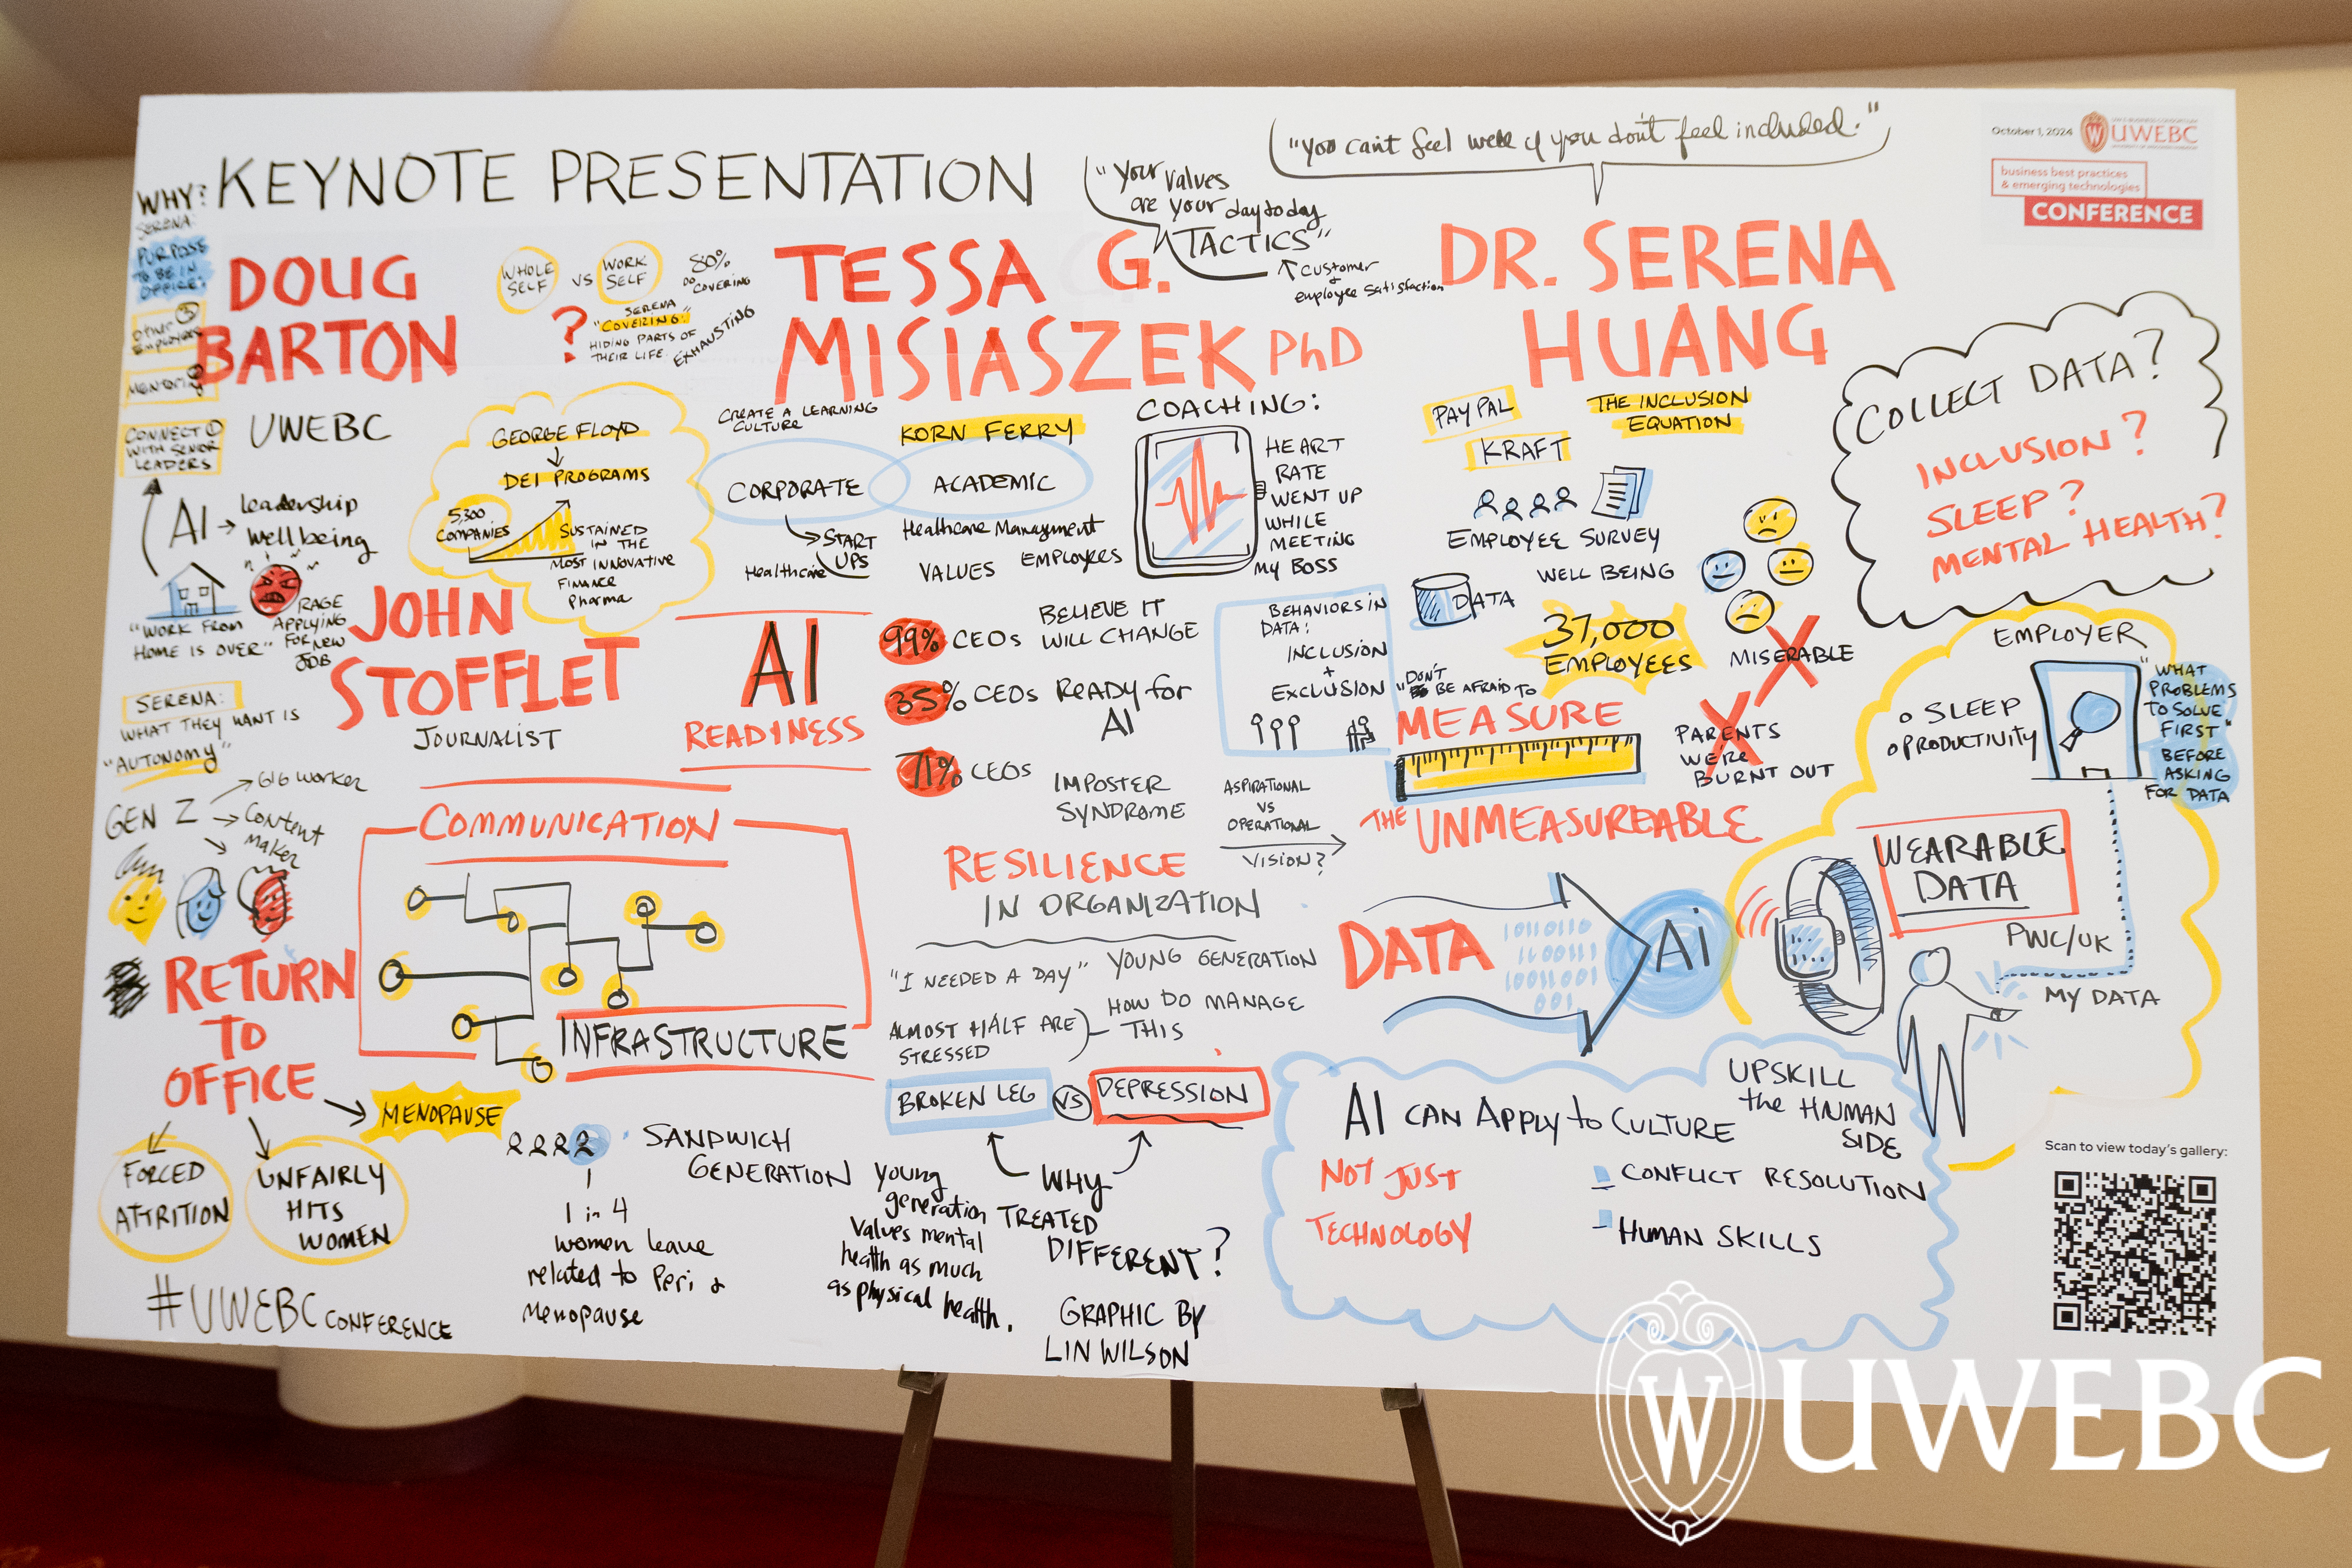 KEYNOTE PRESENTATION
"Your values
are your day to day
TACTICS"
↑ Customer
employee satisfaction
"You can't feel well if you don't feel included."
October 1, 2024
UWEBC
business best practices
& emerging technologies
CONFERENCE
WHY?
SERENA:
PURPOSE
TO BE IN
OFFICE:
OTHER ③
Employees
MENTORING
CONNECT ①
WITH SENIOR
LEADERS
DOUG
BARTON
UWEBC
AI → leadership
wellbeing
"WORK FROM
HOME IS OVER"
RAGE
APPLYING
FOR NEW
JOB
WHOLE
SELF
VS
WORK
SELF
80%
DO
COVERING
?
SERENA
"COVERING:"
HIDING PARTS OF
THEIR LIFE.
EXHAUSTING
GEORGE FLOYD
↓
DEI PROGRAMS
5,300
COMPANIES
SUSTAINED
IN THE
MOST INNOVATIVE
FINANCE
Pharma
JOHN
STOFFLET
JOURNALIST
SERENA:
WHAT THEY WANT IS
"AUTONOMY"
GEN Z
→ GIG worker
→ Content
maker
TESSA G.
MISIASZEK PhD
CREATE A LEARNING
CULTURE
KORN FERRY
CORPORATE
ACADEMIC
START
UPS
Healthcare
Healthcare Managment
VALUES
EMPLOYEES
COACHING:
HEART
RATE
WENT UP
WHILE
MEETING
MY BOSS
AI
READINESS
99% CEOs BELIEVE IT
WILL CHANGE
35% CEOs READY for
AI
71% CEOs IMPOSTER
SYNDROME
BEHAVIORS IN
DATA:
INCLUSION
+
EXCLUSION
ASPIRATIONAL
VS
OPERATIONAL
VISION?
DR. SERENA
HUANG
PAYPAL
KRAFT
THE INCLUSION
EQUATION
EMPLOYEE SURVEY
WELL BEING
DATA
37,000
EMPLOYEES
MISERABLE
PARENTS
WERE
BURNT OUT
"DON'T
BE AFRAID TO
MEASURE
THE UNMEASUREABLE
COLLECT DATA?
INCLUSION?
SLEEP?
MENTAL HEALTH?
EMPLOYER
o SLEEP
o PRODUCTIVITY
"WHAT
PROBLEMS
TO SOLVE
FIRST"
BEFORE
ASKING
FOR DATA
WEARABLE
DATA
PWC/UK
MY DATA
COMMUNICATION
INFRASTRUCTURE
RESILIENCE
IN ORGANIZATION
"I NEEDED A DAY" YOUNG GENERATION
ALMOST HALF ARE
STRESSED
HOW DO MANAGE
THIS
BROKEN LEG
VS
DEPRESSION
WHY
TREATED
DIFFERENT?
young
generation
values mental
health as much
as physical health.
DATA
AI
RETURN
TO
OFFICE
MENOPAUSE
FORCED
ATTRITION
UNFAIRLY
HITS
WOMEN
SANDWICH
GENERATION
1 in 4
women leave
related to Peri &
Menopause
AI CAN APPLY to CULTURE
NOT JUST
TECHNOLOGY
UPSKILL
the HUMAN
SIDE
- CONFLICT RESOLUTION
- HUMAN SKILLS
#UWEBC CONFERENCE
GRAPHIC BY
LIN WILSON
Scan to view today's gallery:
W UWEBC